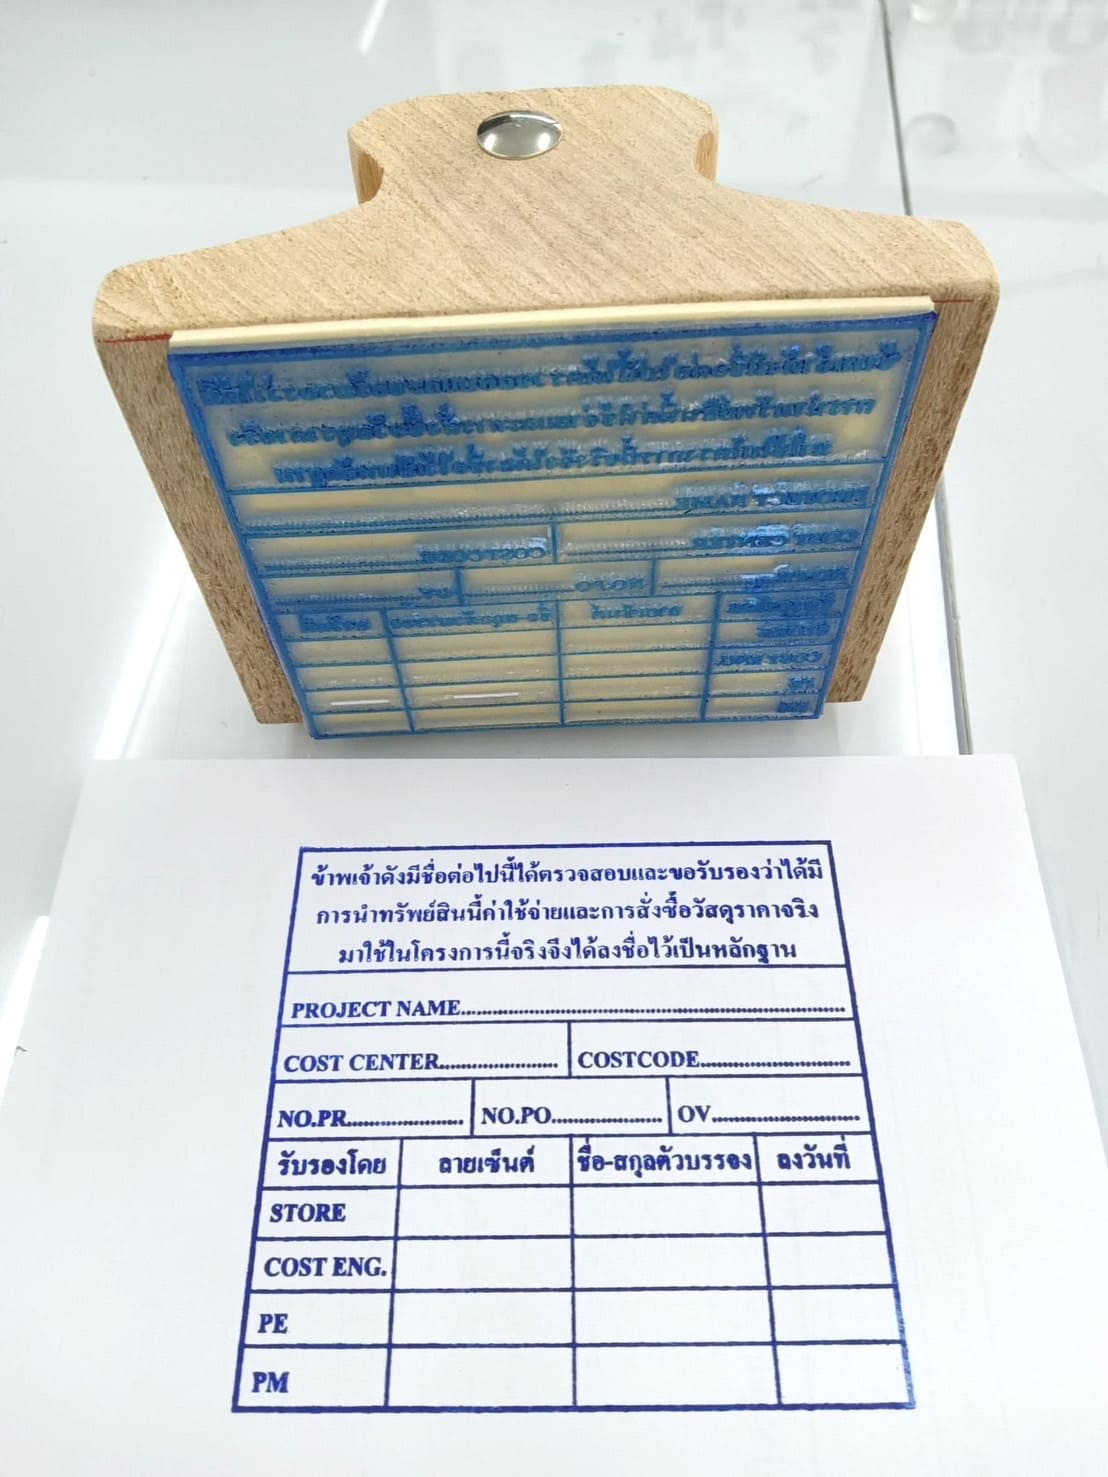 ข้าพเจ้าดังมีชื่อต่อไปนี้ได้ตรวจสอบและขอรับรองว่าได้มี
การนำทรัพย์สินนี้ค่าใช้จ่ายและการสั่งซื้อวัสดุราคาจริง
มาใช้ในโครงการนี้จริงจึงได้ลงชื่อไว้เป็นหลักฐาน
PROJECT NAME
COST CENTER COSTCODE
NO.PR NO.PO OV
รับรองโดย ลายเซ็นต์ ชื่อ-สกุลตัวบรรจง ลงวันที่
STORE
COST ENG.
PE
PM